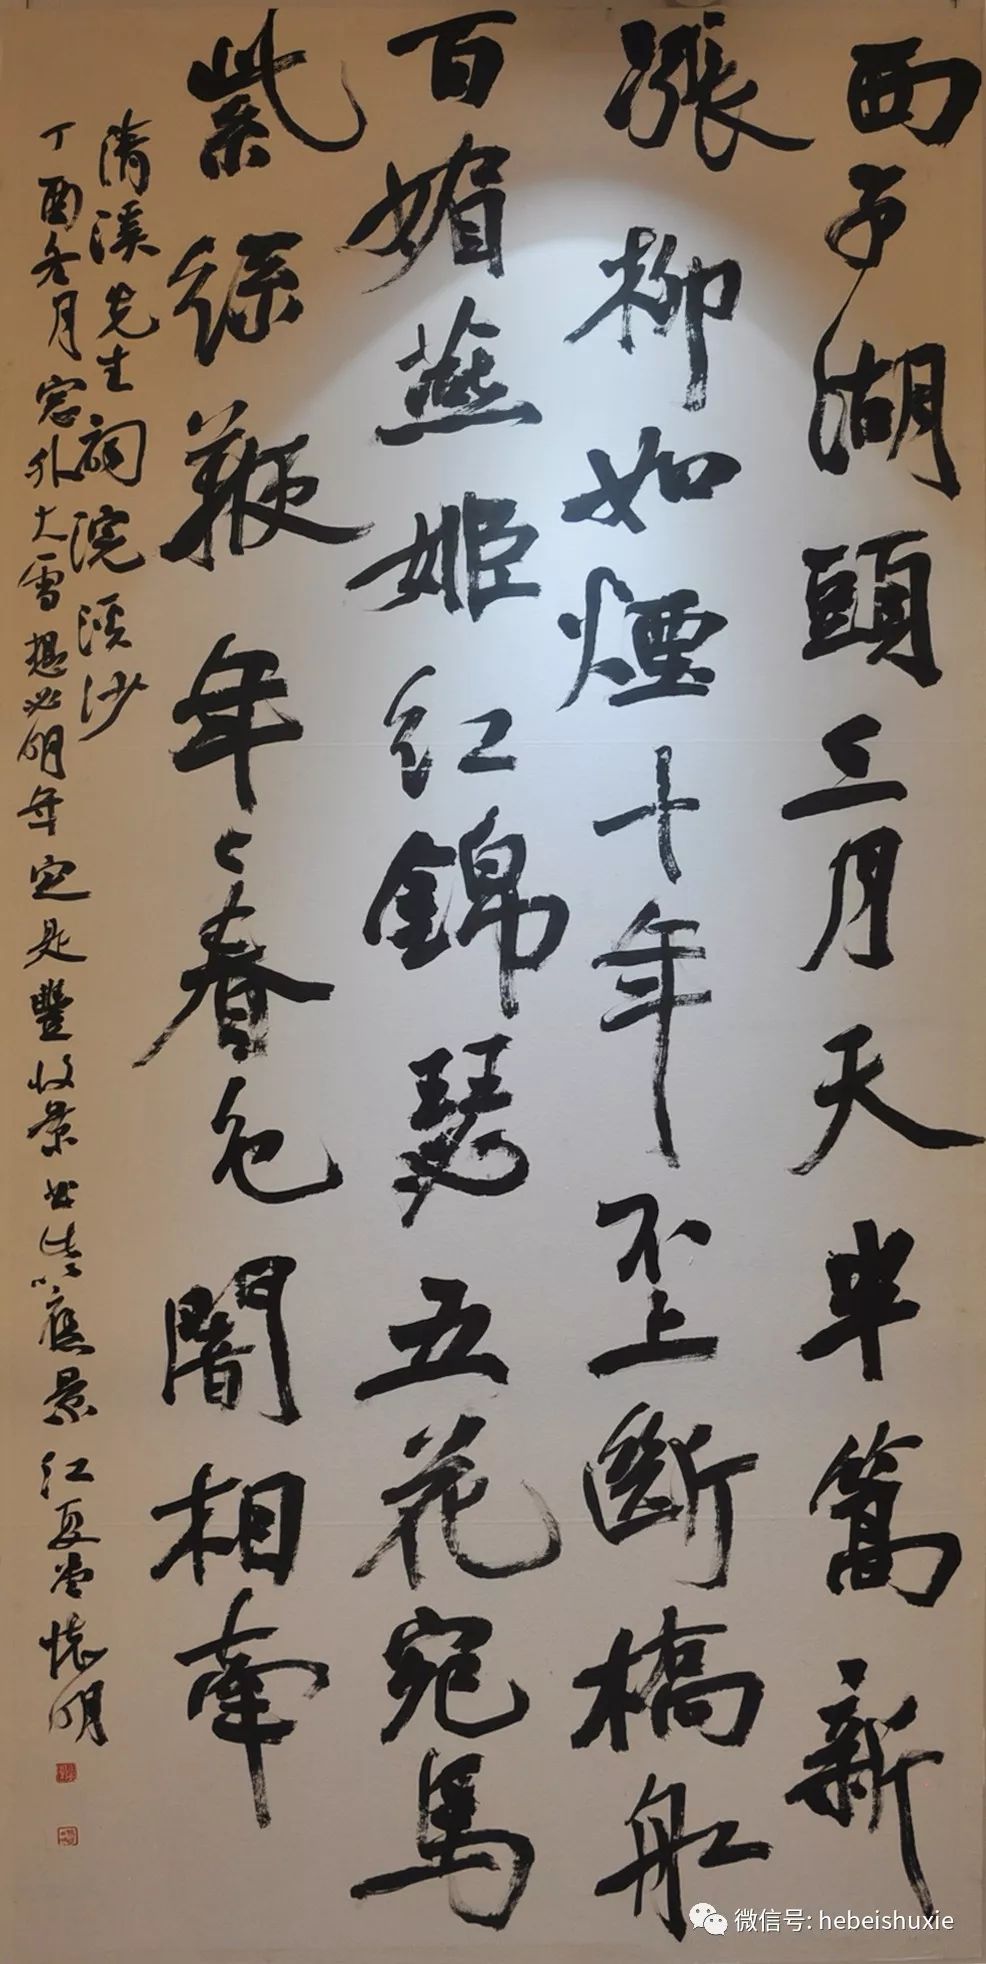 西子湖頭三月天半篙新
漲柳如煙十年不上斷橋船
百媚燕姬紅錦瑟五花宛馬
紫絲鞭年〻春色闇相牽
清溪先生詞浣溪沙
丁酉冬月窗外大雪想必明年定是豐收景書此以應景江夏堂懷明
微信号: hebeishuxie